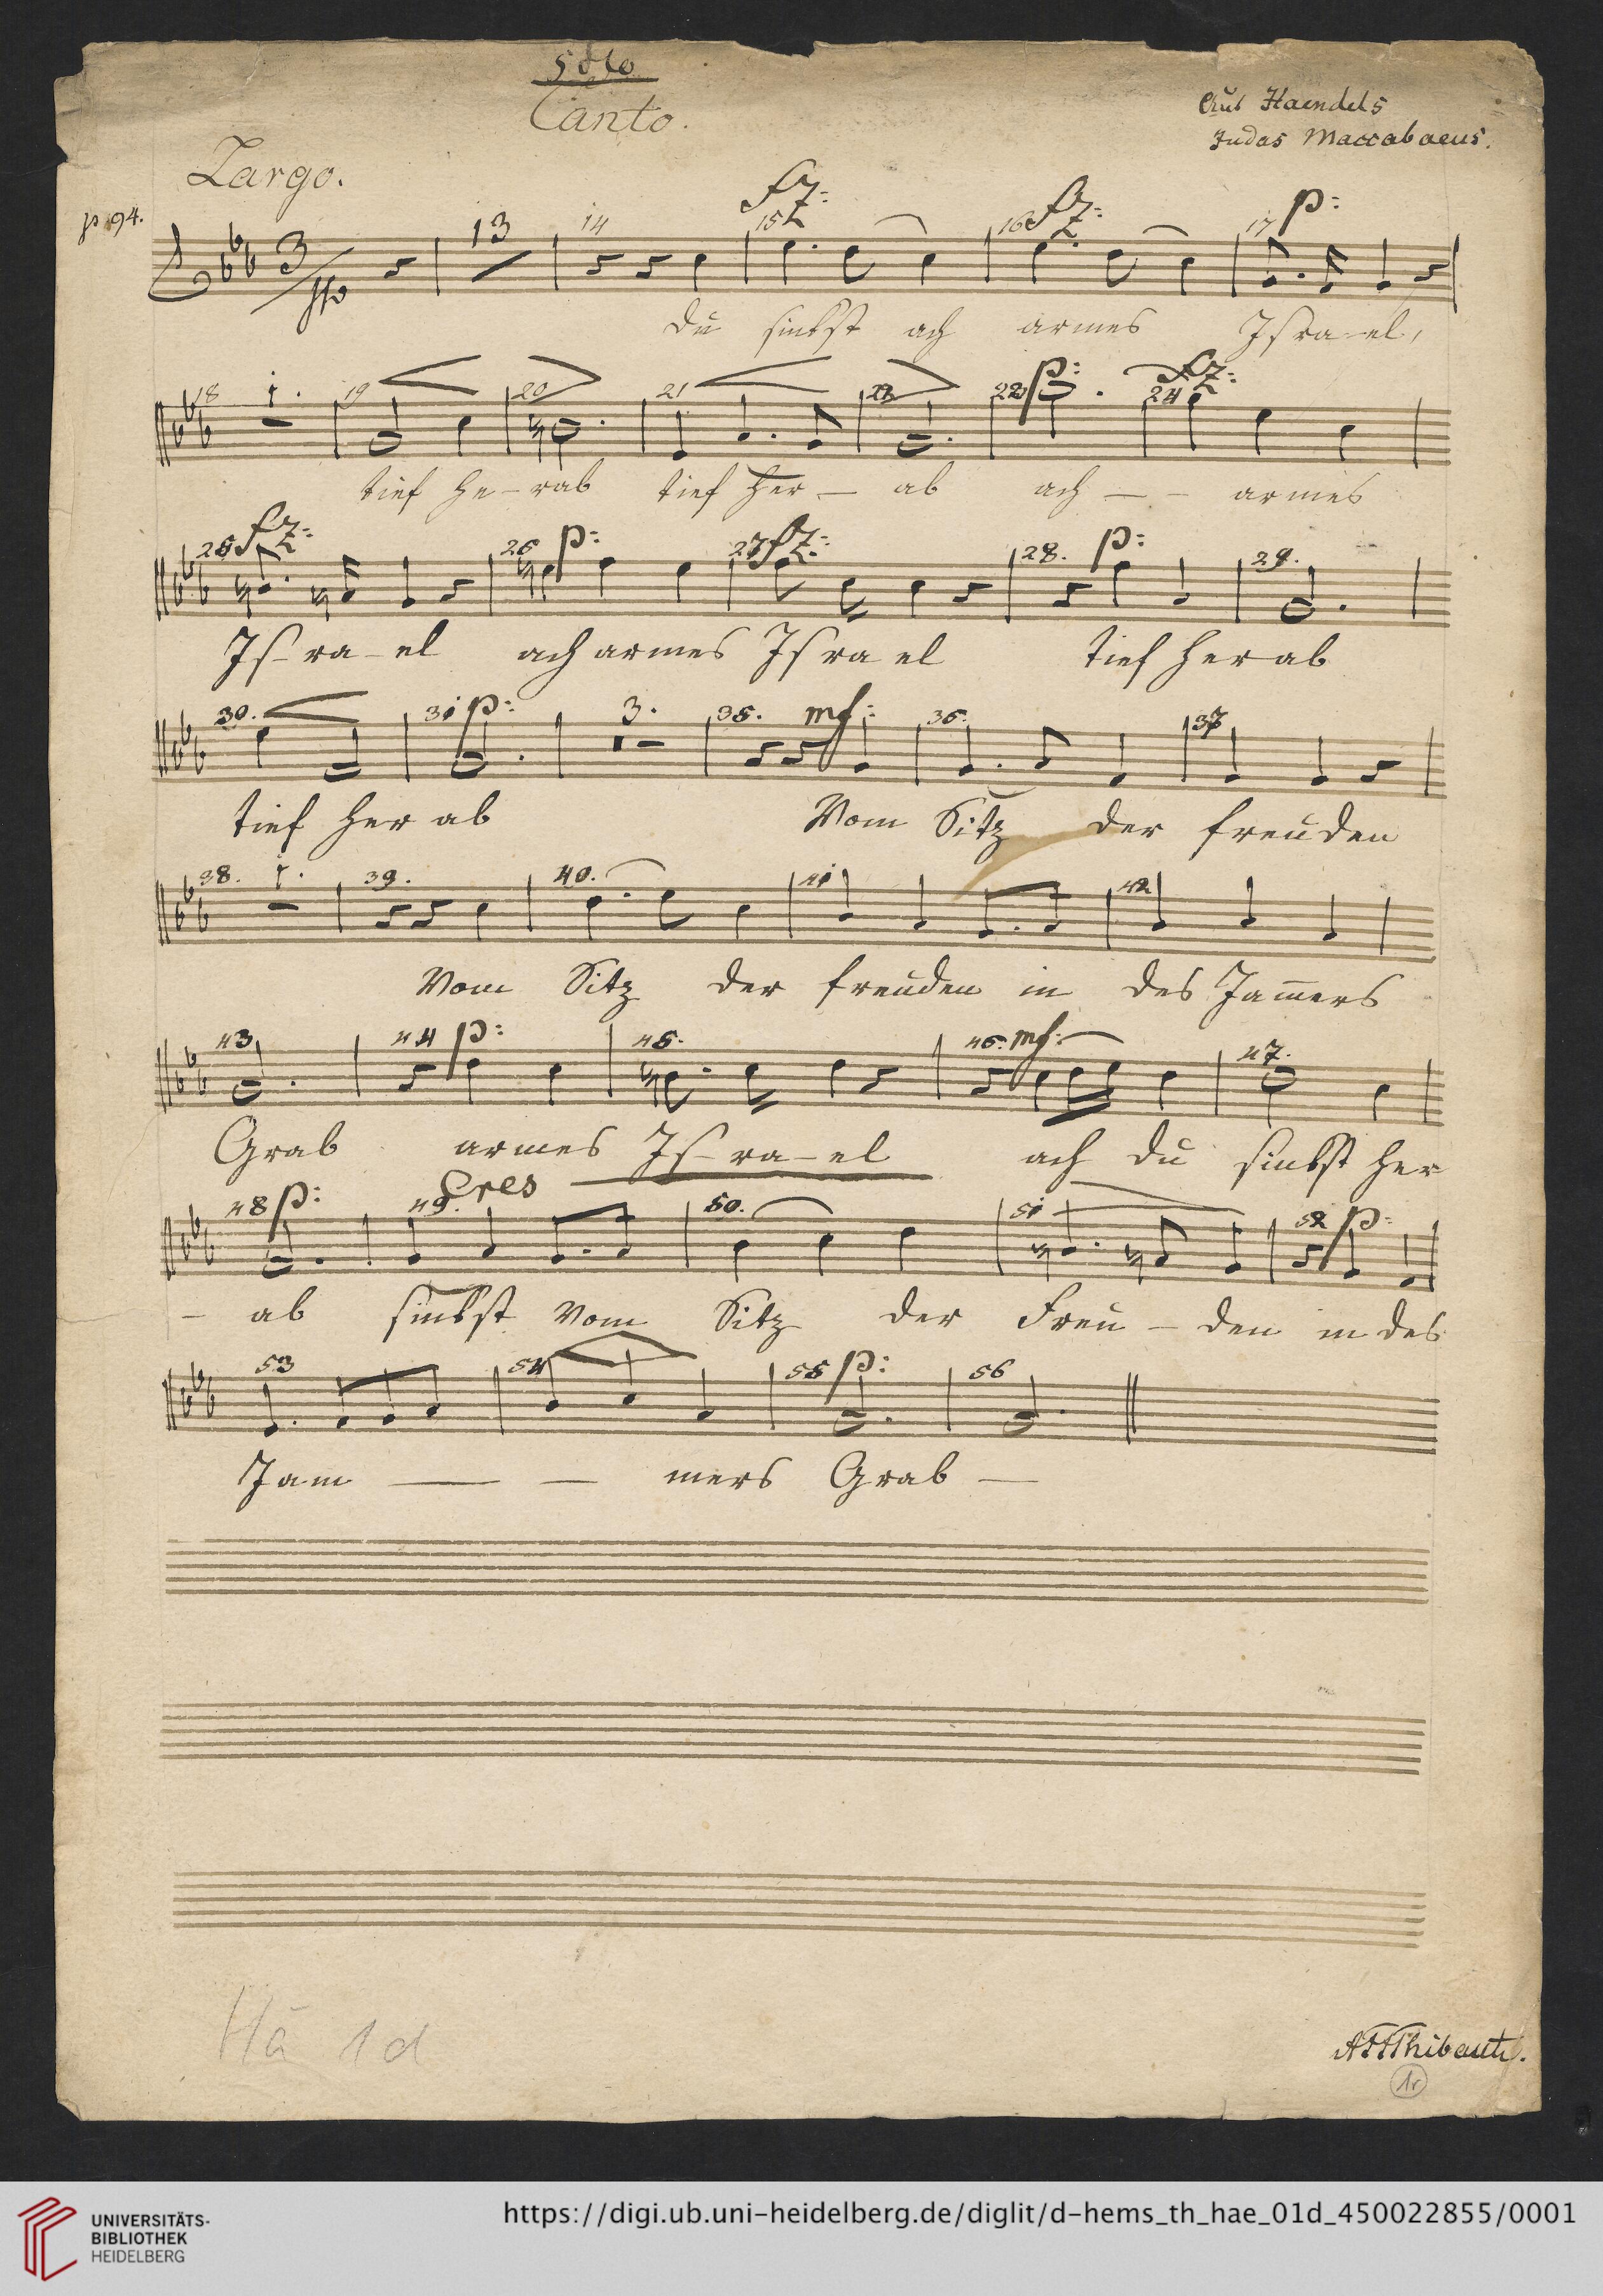 Solo
Canto.
Aus Haendels
Judas Maccabaeus.
Largo.
p 94.
fz: fz: p:
13 14 15 16 17
3
Du sinkst ach armes Israel,
p: fz:
18 1. 19 20 21 22 23 24
tief he-rab tief her- ab ach - - armes
fz: p: fz: p:
25 26 27 28. 29.
Is-ra-el ach armes Israel tief herab
30. 31 p: 3. 35. mf: 36. 37
tief herab Vom Sitz der freuden
38. 1. 39. 40. 41 42
Vom Sitz der freuden in des Jam̅ers
43 44 p: 45. 46. mf: 47.
Grab armes Is-ra-el ach du sinkst her
48 p: 49. Cres 50. 51 52 p:
- ab sinkst vom Sitz der Freu - den in des
53 54 55 p: 56
Jam - - mers Grab -
Hä 1d
AFJThibaut.
1r
UNIVERSITÄTS-
BIBLIOTHEK
HEIDELBERG
https://digi.ub.uni-heidelberg.de/diglit/d-hems_th_hae_01d_450022855/0001